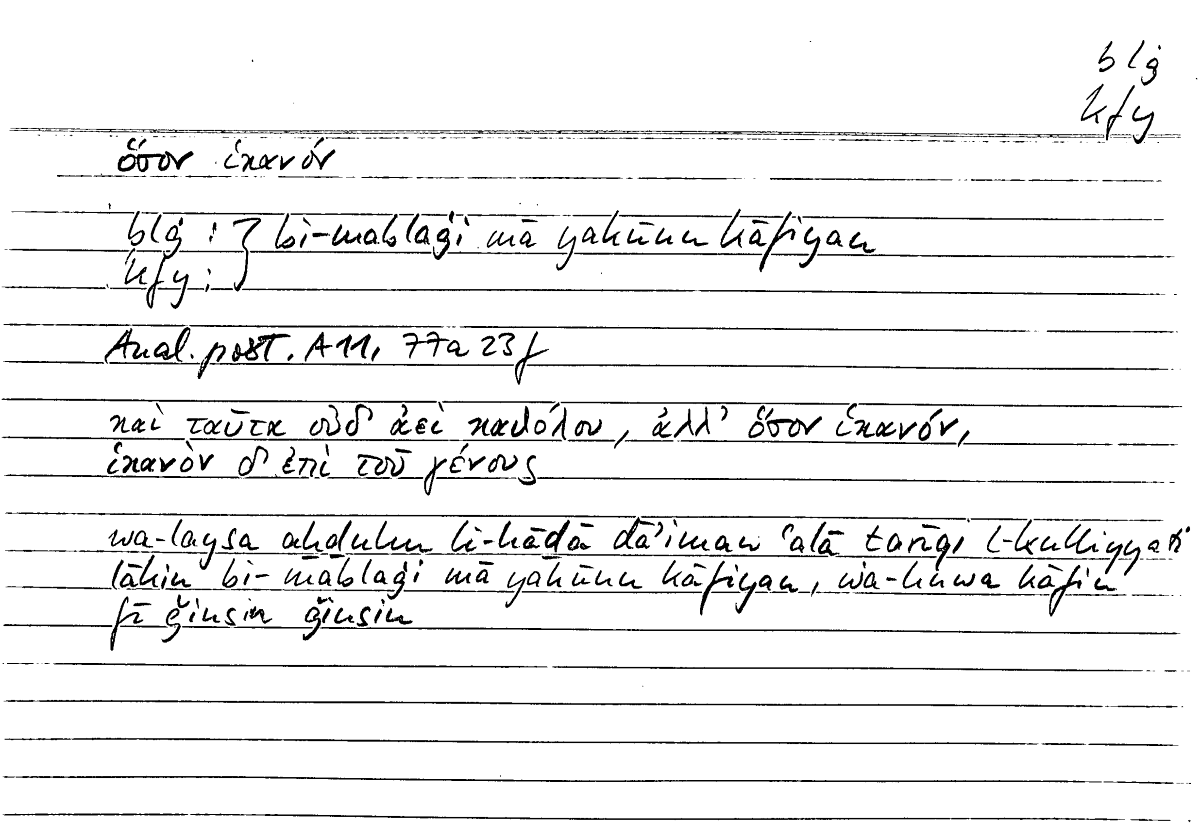 blġ
kfy
ὅσον ἱκανόν
blġ : } bi-mablaġi mā yakūnu kāfiyan
kfy :
Anal. post. A11, 77a 23f
καὶ ταῦτα οὐδ' ἀεὶ καθόλου, ἀλλ' ὅσον ἱκανόν,
ἱκανὸν δ' ἐπὶ τοῦ γένους
wa-laysa aḫduhu li-hāḏā dā'iman ʿalā ṭarīqi l-kulliyyati
lākin bi-mablaġi mā yakūnu kāfiyan, wa-huwa kāfin
fī ǧinsin ǧinsin